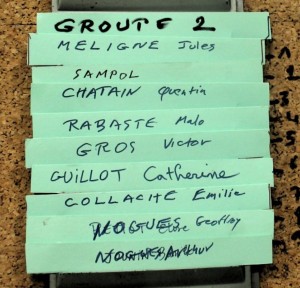 GROUPE 2
MELIGNE Jules
SAMPOL
CHATAIN Quentin
RABASTE Malo
GROS Victor
GUILLOT Catherine
GOLLACHE Emilie
NOGUES Geoffroy
1
2
3
4
5